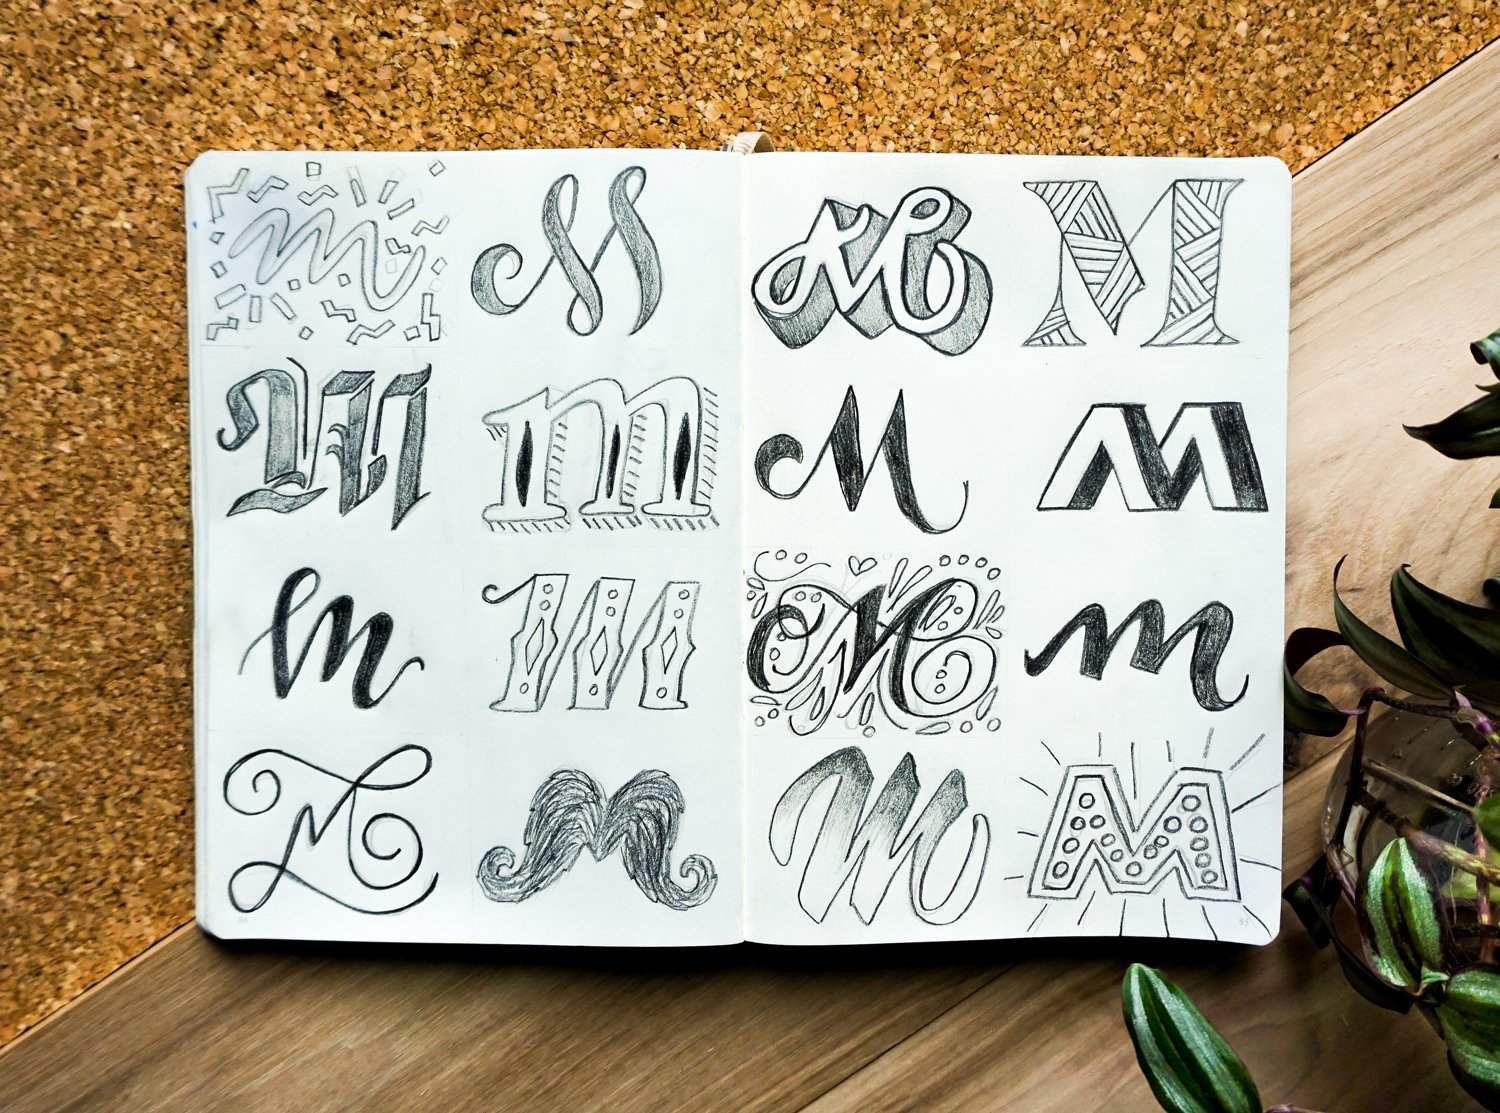 m M
M m
m M
M M
M M
M M
M m
M M